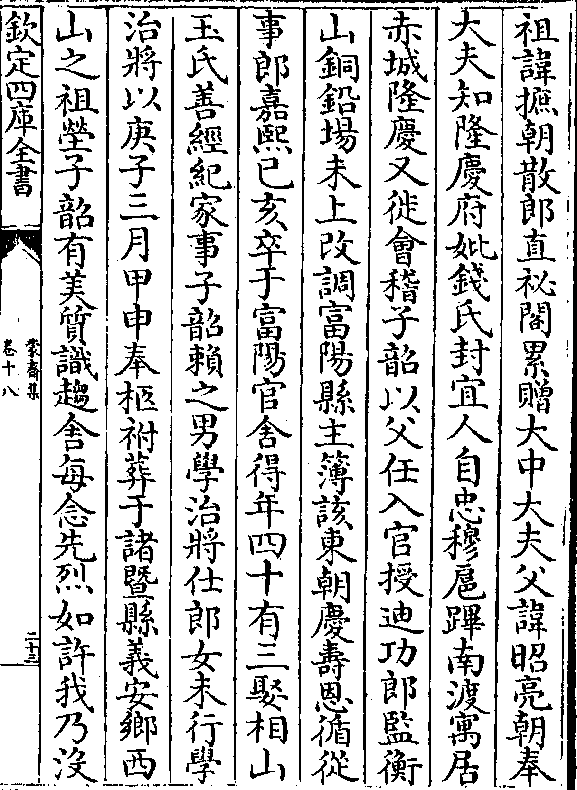 祖諱摭朝散郎直祕閣累贈大中大夫父諱昭亮朝奉
大夫知隆慶府妣錢氏封宜人自忠穆扈蹕南渡寓居
赤城隆慶又徙會稽子韶以父任入官授迪功郎監衡
山銅鉛場未上改調富陽縣主簿該東朝慶壽恩循從
事郎嘉熙已亥卒于富陽官舍得年四十有三娶相山
王氏善經紀家事子韶賴之男學治將仕郎女未行學
治將以庚子三月甲申奉柩祔葬于諸暨縣義安鄉西
山之祖塋子韶有美質識趨舍每念先烈如許我乃沒
欽定四庫全書
蒙齋集
卷十八
二十三